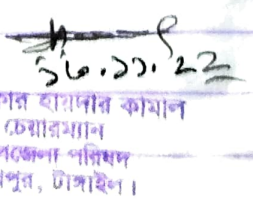 ১৬.১১.২২
হায়দার কামাল
চেয়ারম্যান
পরিষদ
টাঙ্গাইল।